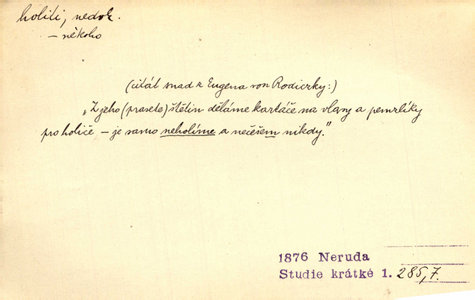 holiti, nedok.
– někoho
(citát snad z Eugena von Rodiczky:)
„Z jeho (prasete) štětin děláme kartáče na vlasy a pemzlíky
pro holiče – je samo neholíme a nečešem nikdy.“
1876 Neruda
Studie krátké 1. 285,7.